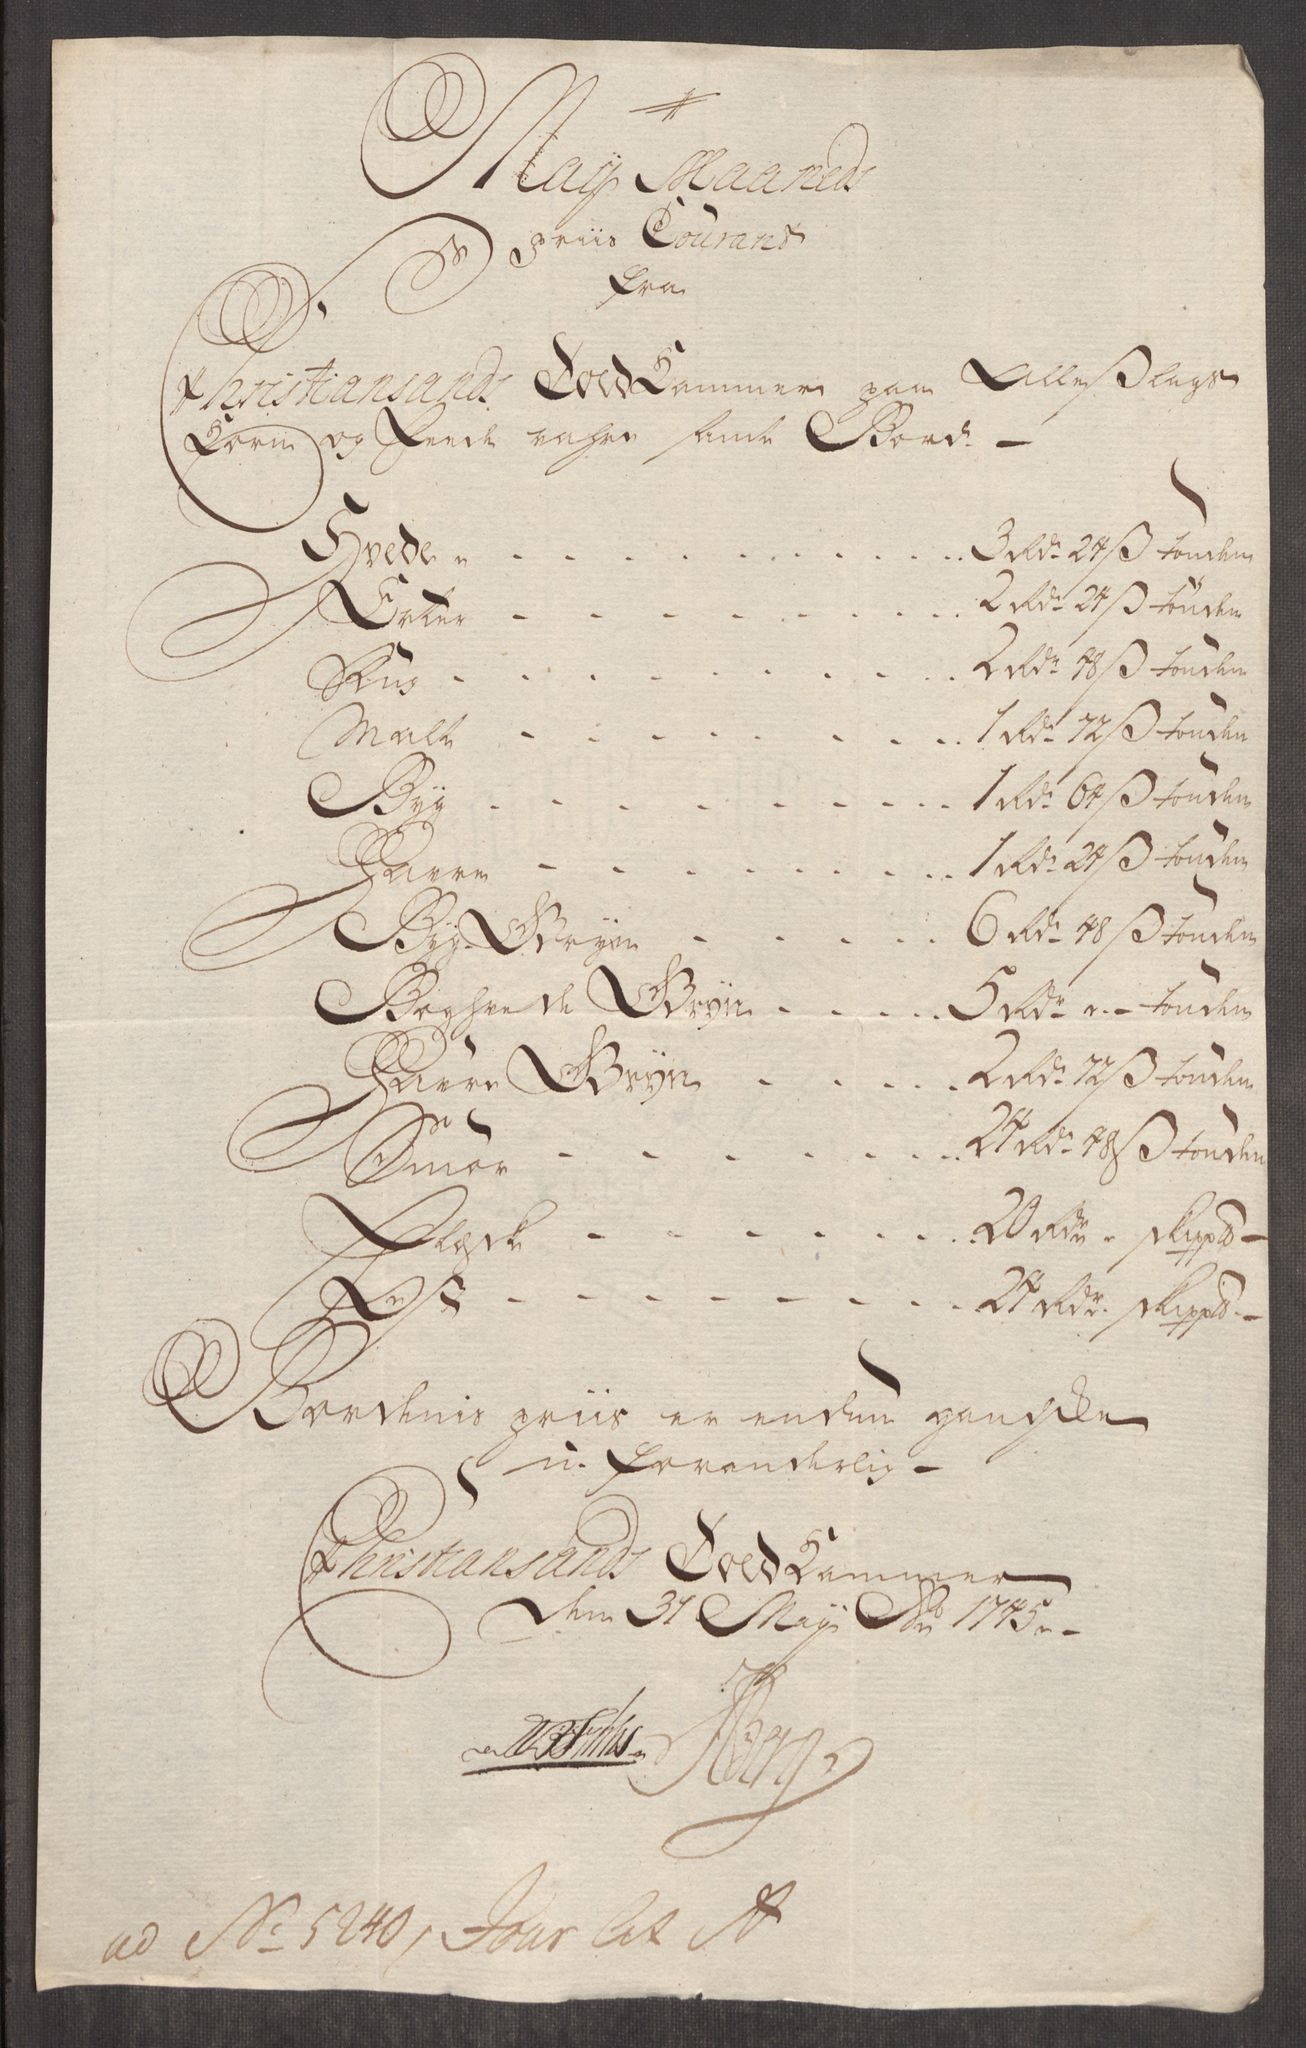 May Maaneds
priis Courant
fra
Christiansands Told Kammer paa Alle Slags
Korn og Feede vahre samt Bord
Hvede 3 Rdr 24 ß tønden
Erter 2 Rdr 24 ß tønden
Rug 2 Rdr 48 ß tønden
Malt 1 Rdr 72 ß tønden
Byg 1 Rdr 64 ß tønden
Havre 1 Rdr 24 ß tønden
Byg Gryn 6 Rdr 48 ß tønden
Boghvede Gryn 5 Rdr - tønden
Havre Gryn 2 Rdr 72 ß tønden
Smør 24 Rdr 48 ß tønden
Flesk 20 Rdr skippd
Ost 24 Rdr skippd
Bordenis priis er endnu gandske
u-foranderlig
Christiansands Told Kammer
den 31 May Ao 1745
ad No 5240, Jour Lit A